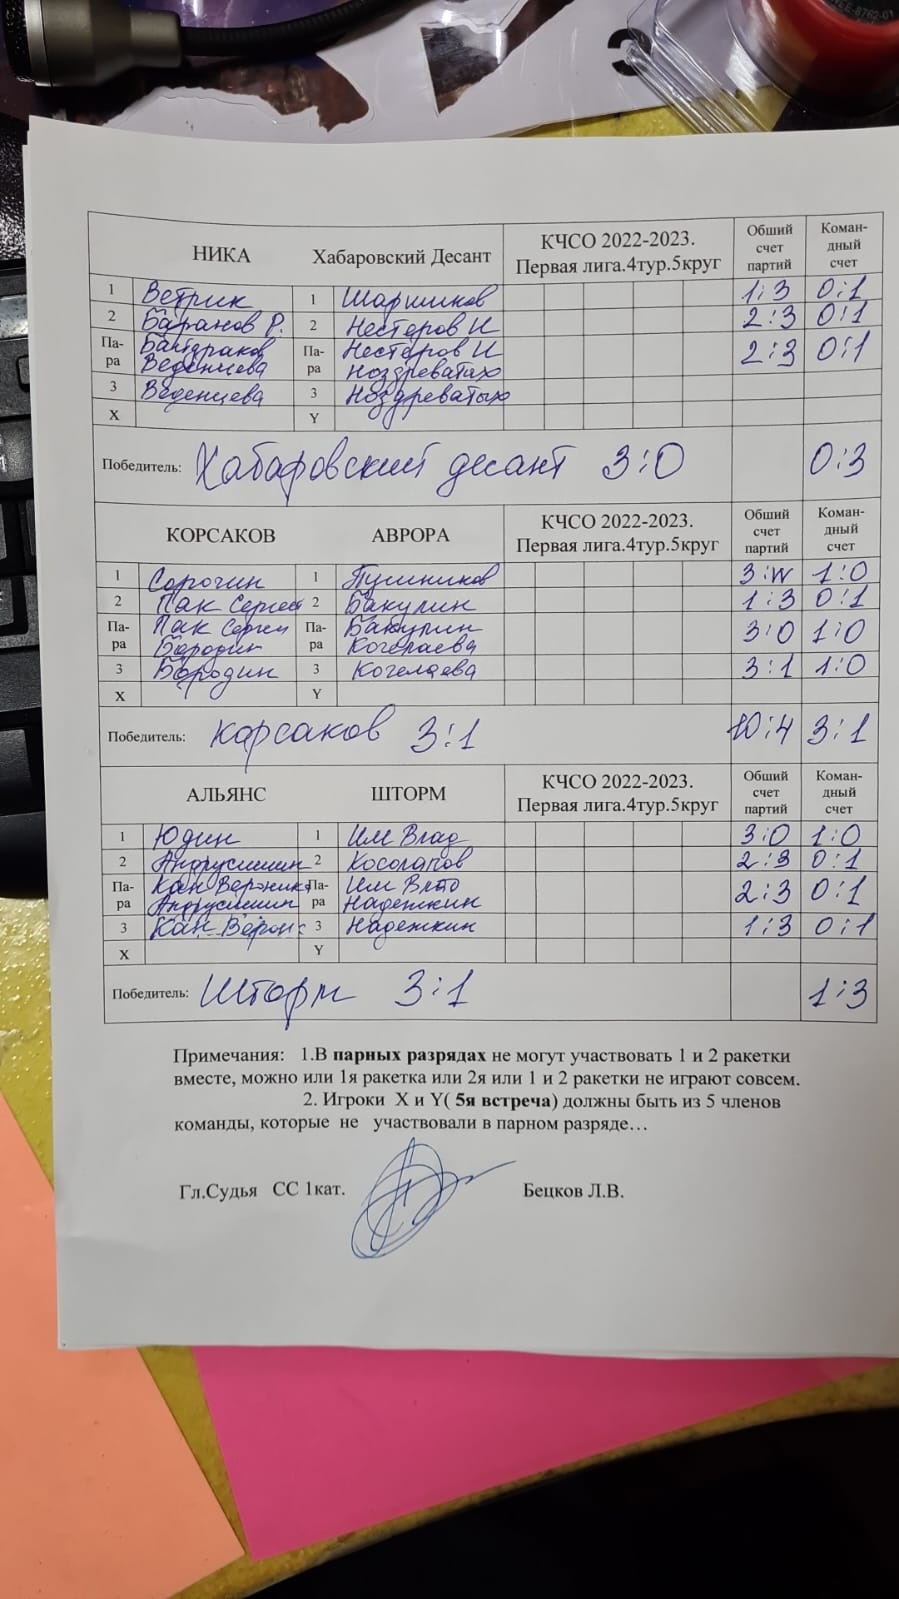 ЕЕ-8762-01
НИКА Хабаровский Десант КЧСО 2022-2023. Первая лига.4тур.5круг Обший счет партий Коман-дный счет
1 Ветрик 1 Шаршиков 1:3 0:1
2 Баранов Р. 2 Нестеров И 2:3 0:1
Па-ра Па-ра Нестеров И 2:3 0:1
Веденцева Ноздреватых
3 Веденцева 3 Ноздреватых
X Y
Победитель: Хабаровский десант 3:0 0:3
КОРСАКОВ АВРОРА КЧСО 2022-2023. Первая лига.4тур.5круг Обший счет партий Коман-дный счет
1 Сорочин 1 Пушников 3:W 1:0
2 Пак Сергей 2 Бакулин 1:3 0:1
Па-ра Пак Сергей Па-ра Бакулин 3:0 1:0
Бородин Когелаева
3 Бородин 3 Когелаева 3:1 1:0
X Y
Победитель: Корсаков 3:1 10:4 3:1
АЛЬЯНС ШТОРМ КЧСО 2022-2023. Первая лига.4тур.5круг Обший счет партий Коман-дный счет
1 Юдин 1 Им Влад 3:0 1:0
2 Андрусишин 2 Косолапов 2:3 0:1
Па-ра Кан Вероника Па-ра Им Влад 2:3 0:1
Андрусишин Надежкин
3 Кан Верон 3 Надежкин 1:3 0:1
X Y
Победитель: Шторм 3:1 1:3
Примечания: 1.В парных разрядах не могут участвовать 1 и 2 ракетки
вместе, можно или 1я ракетка или 2я или 1 и 2 ракетки не играют совсем.
2. Игроки X и Y( 5я встреча) должны быть из 5 членов
команды, которые не участвовали в парном разряде…
Гл.Судья СС 1кат. Бецков Л.В.